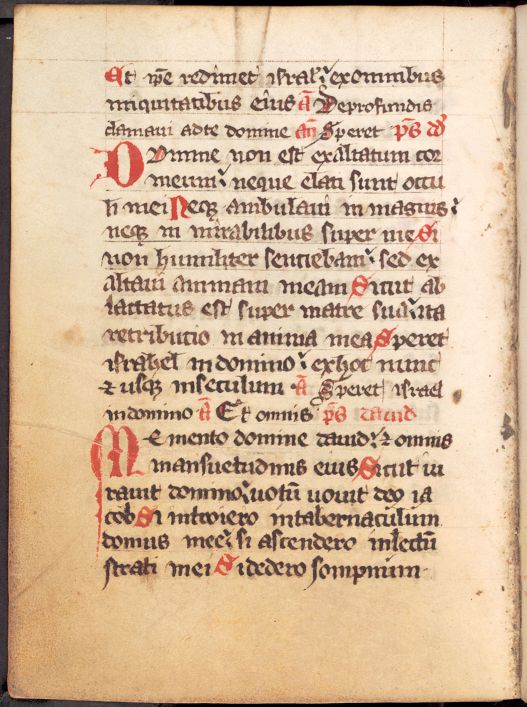 Et ip̄e redimet israhl᷑ ex omnibus
iniquitatibus eius A̅ De profundis
clamaui ad te domine an̅ Speret ps̅ dd̅
Domine non est exaltatum cor
meum neque elati sunt occu
li mei Neqꝫ ambulaui in magnis
neqꝫ in mirabilibus super me Si
non humiliter sentiebam sed ex
altaui animam meam Sicut ab
lactatus est super matre sua ita
retributio in anima mea Speret
israhel in domino ex hoc nunc
⁊ usqꝫ in seculum A̅ Speret israel
in domino A̅ Et omnis ps̅ dauid
Memento domine dauid ⁊ omnis
mansuetudinis eius Sicut iu
rauit domino uotū uouit deo ia
cob Si introiero in tabernaculum
domus mee si ascendero in lectū
strati mei Si dedero sompnum